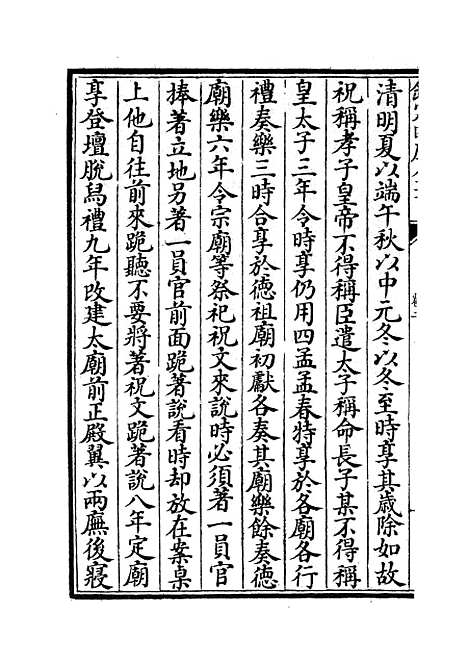 清明夏以端午秋以中元冬以冬至時享其歳除如故
祝稱孝子皇帝不得稱臣遣太子稱命長子某不得稱
皇太子三年令時享仍用四孟孟春特享於各廟各行
禮奏樂三時合享於徳祖廟初獻各奏其廟樂餘奏徳
廟樂六年令宗廟等祭祀祝文來說時必須著一員官
捧著立地另著一員官前面跪著說看時却放在案桌
上他自往前來跪聽不要將著祝文跪著說八年定廟
享登壇脫舄禮九年改建太廟前正殿翼以兩廡後寝